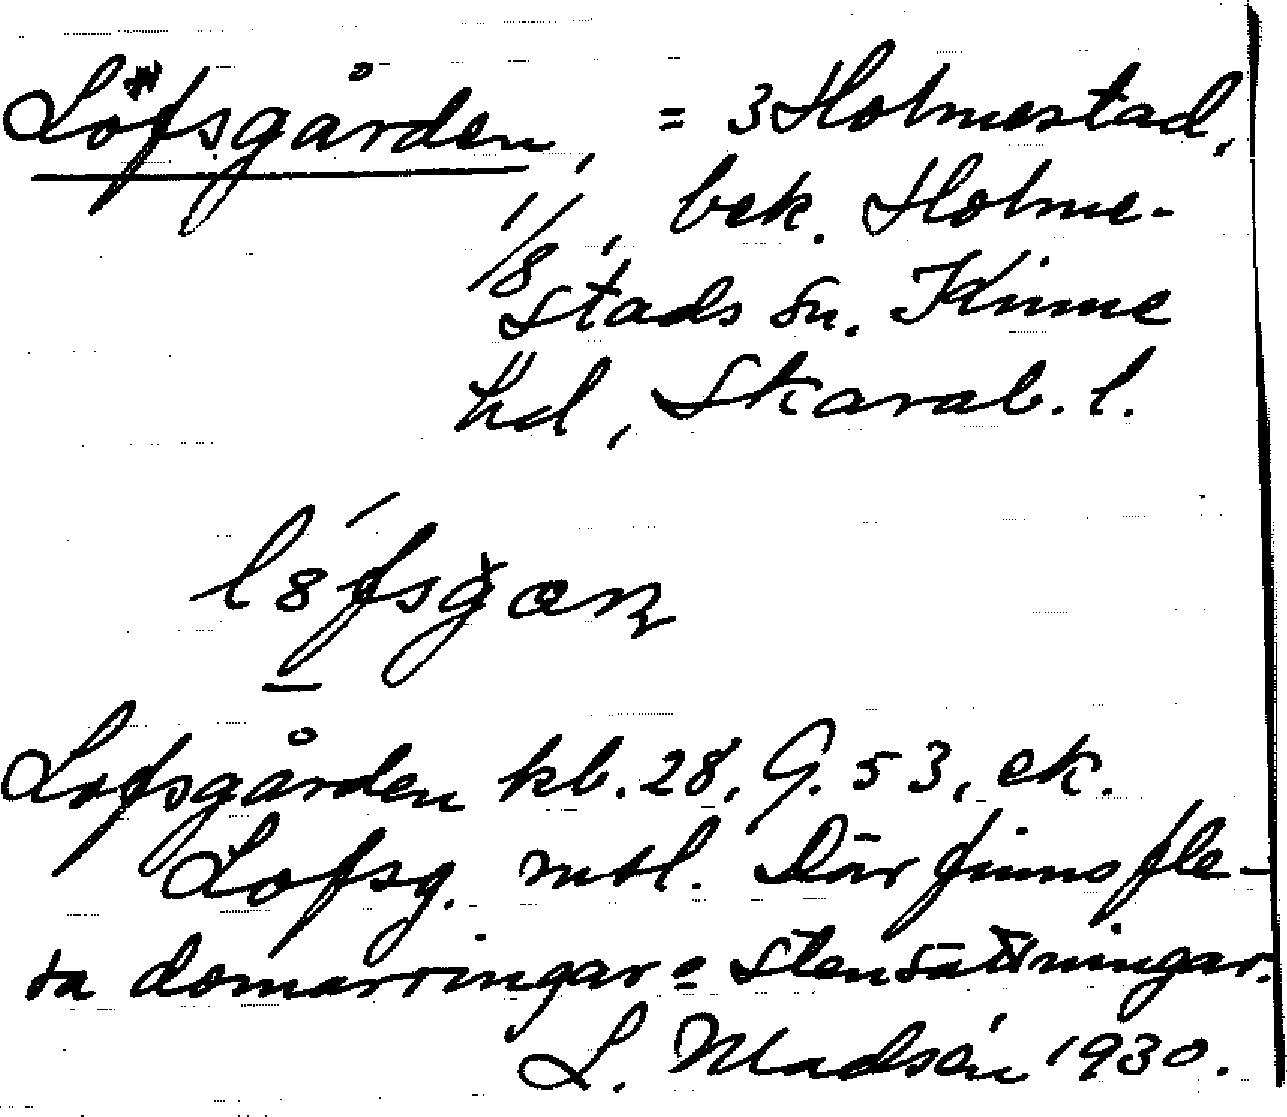 Löfsgården, = 3 Holmestad,
1/8, bek. Holme-
stads sn. Kinne
hd, Skarab. l.
Lofsgården kb. 28, G. 53, ek.
Lofsg. mtl. Där finns fle-
ra domarringar = stensättningar.
L. Madsén 1930.